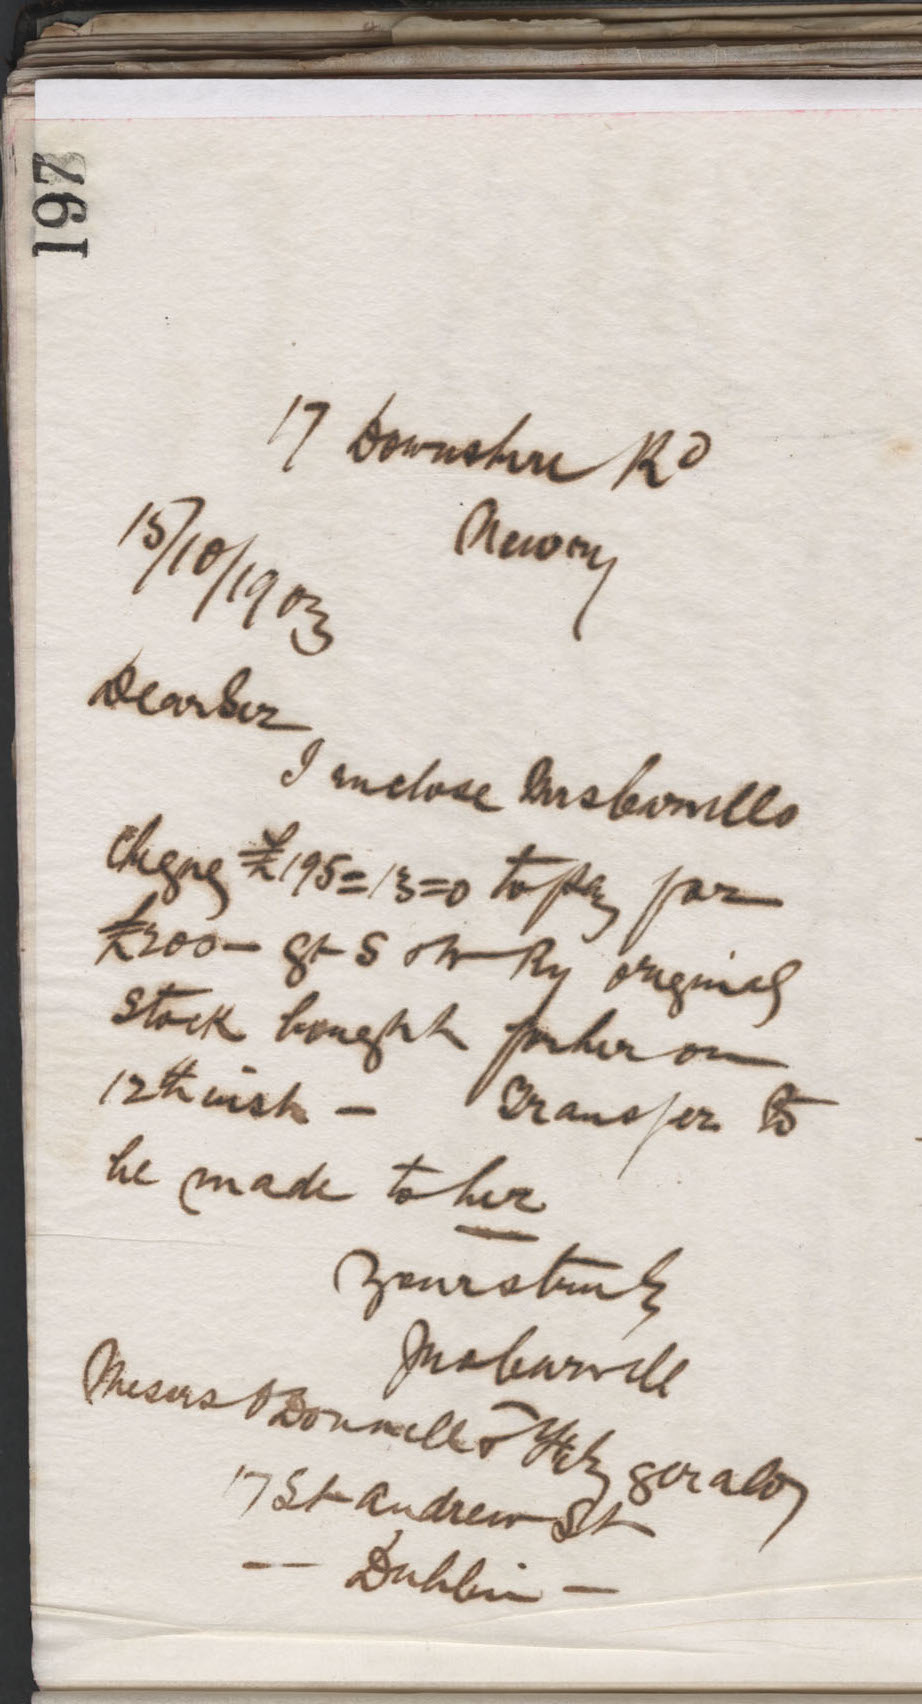 197
17 Downshire Rd
Newry
15/10/1903
Dear Sir
I enclose Mrs Carvills
Cheque £195=13=0 to pay for
£200 - Gt S & W Ry original
Stock bought for her on
12th inst - Transfer to
be made to her
Yours truly
Jno Carvill
Messrs O'Donnell & Fitzgerald
17 St Andrew St
-- Dublin -